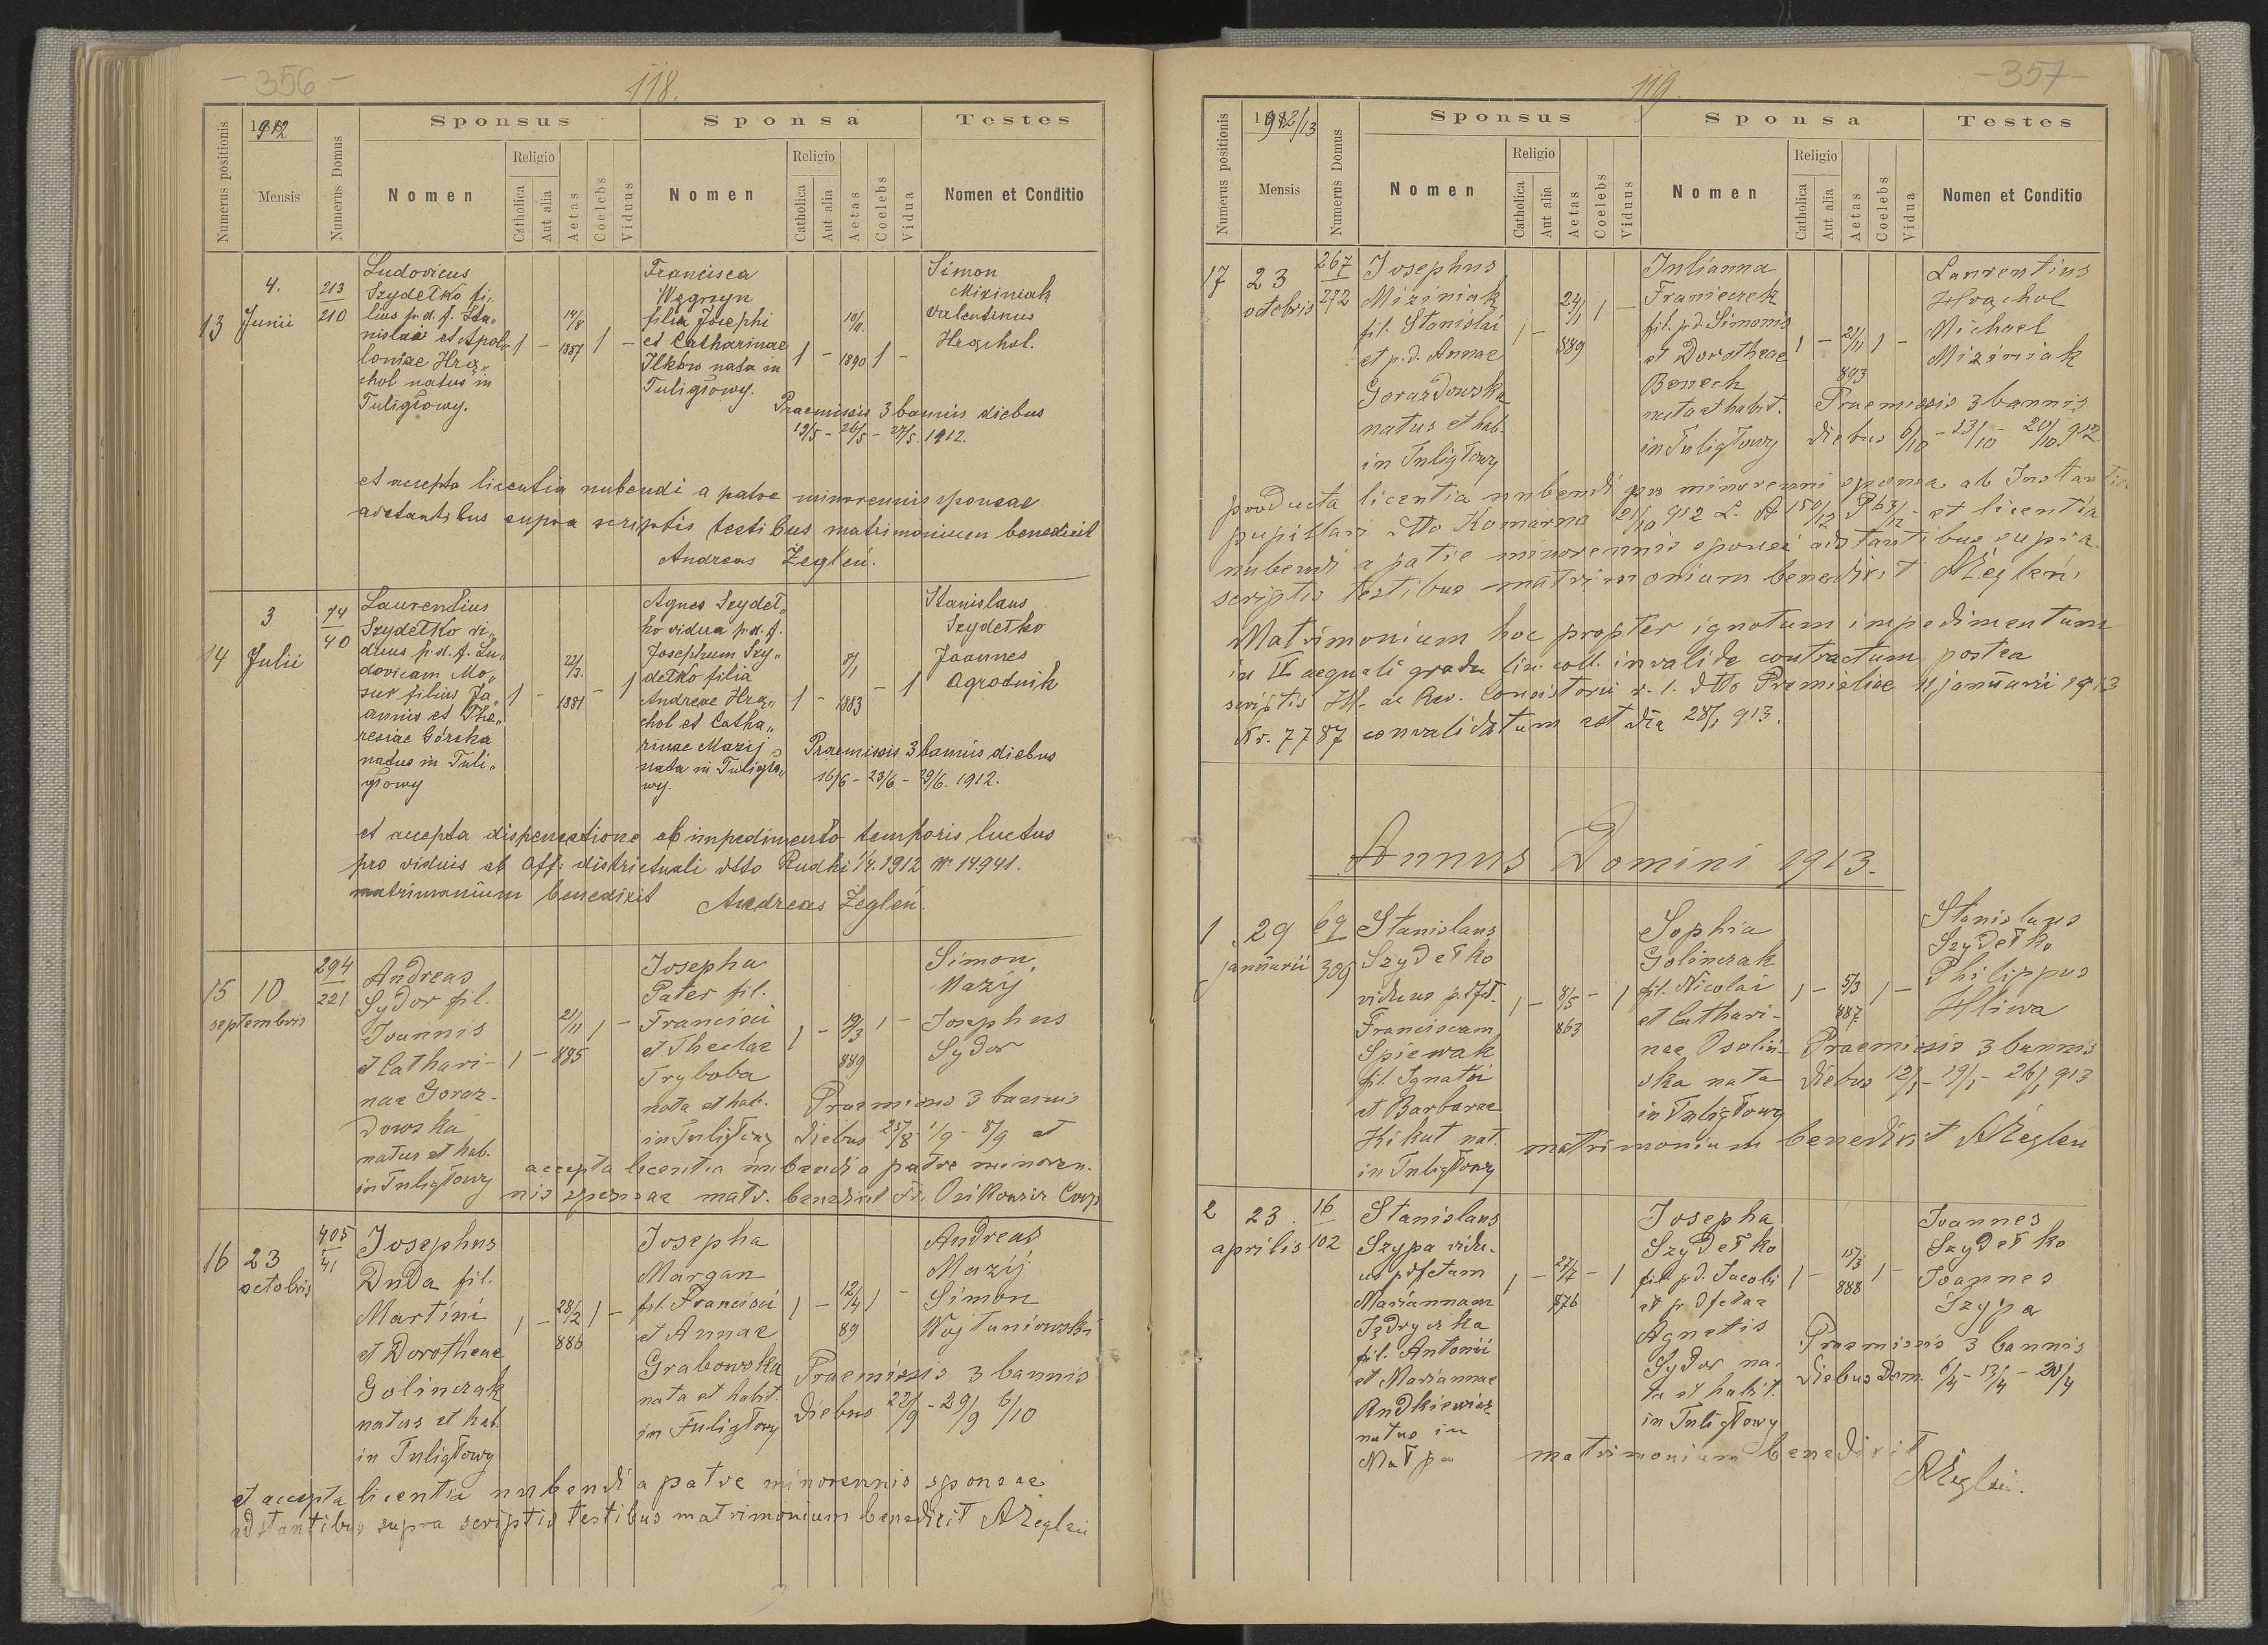 - 356 -
118.
Numerus positionis
1912
Mensis
Numerus Domus
Sponsus
Nomen
Religio
Catholica
Aut alia
Aetas
Coelebs
Viduus
Sponsa
Nomen
Religio
Catholica
Aut alia
Aetas
Coelebs
Vidua
Testes
Nomen et Conditio
13
4.
Junii
213
210
Ludovicus
Szydełko fi„
lius p. d. f. Sta„
nislai et Apol„
loniae Hrą„
chol natus in
Tuligłowy.
1 -
14/8
1887
1 -
Francisca
Węgrzyn
filia Josephi
et Catharinae
Ilków nata in
Tuligłowy.
1 -
1890
1 -
Simon
Miziniak
Valentinus
Hrąchol.
Praemissis 3 bannis diebus
19/5 - 26/5 - 27/5. 1912.
et accepta licentia nubendi a patre minorennis sponsae
adstantibus supra scriptis testibus matrimonium benedixit
Andreas Żegleń.
14
3
Julii
74
40
Laurentius
Szydełko vi„
duus p. d. f. Lu„
dovicam Mo„
sur filius Jo„
annis et The„
resiae Górska
natus in Tuli„
głowy
1 -
1881
- 1
Agnes Szydeł„
ko vidua p. d. f.
Josephum Szy„
dełko filia
Andreae Hrą„
chol et Catha„
rinae Mazij
nata in Tuligło„
wy.
1 -
8/1
1883
- 1
Stanislaus
Szydełko
Joannes
Ogrodnik
Praemissis 3 bannis diebus
16/6 - 23/6 - 29/6. 1912.
et accepta dispensatione ab impedimento temporis luctus
pro viduis ab Off. districtuali dtto Rudki 1/7. 1912 Nr 14941.
matrimonium benedixit Andreas Żegleń.
15
10
septembris
294
221
Andreas
Sydor fil.
Joannis
et Cathari-
nae Goraz-
dowska
natus et hab.
in Tuligłowy
1 -
21/11
885
1 -
Josepha
Pater fil.
Francisci
et Theclae
Tryboba
nata et hab.
in Tuligłowy
1 -
19/3
889
1 -
Simon
Mazij
Josephus
Sydor
Praemissis 3 bannis
diebus 25/8 1/9 - 8/9 et
accepta licentia nubendi a patre minoren-
nis sponsae matr. benedixit Fr. Osikowicz Coop
16
23
octobris
405
41
Josephus
Duda fil.
Martini
et Dorotheae
Golinczak
natus et hab.
in Tuligłowy
1 -
28/2
886
1 -
Josepha
Margan
fil. Francisci
et Annae
Grabowska
nata et habit.
in Tuligłowy
1 -
12/4
89
1 -
Andreas
Mazij
Simon
Wojtuniowski
Praemissis 3 bannis
diebus 22/9 - 29/9 6/10
et accepta licentia nubendi a patre minorennis sponsae
adstantibus supra scriptis testibus matrimonium benedixit AŻegleń
- 357 -
119.
Numerus positionis
1912/13
Mensis
Numerus Domus
Sponsus
Nomen
Religio
Catholica
Aut alia
Aetas
Coelebs
Viduus
Sponsa
Nomen
Religio
Catholica
Aut alia
Aetas
Coelebs
Vidua
Testes
Nomen et Conditio
17
23
octobris
267
272
Josephus
Miziniak
fil. Stanislai
et p. d. Annae
Gorazdowska
natus et hab.
in Tuligłowy
1 -
24/1
889
1 -
Julianna
Franieczek
fil. p. d. Simonis
et Dorotheae
Benech
nata et habit.
in Tuligłowy
1 -
21/11
893
1 -
Laurentius
Hrąchol
Michael
Miziniak
Praemissis 3 bannis
diebus 6/10 - 13/10 - 20/10 912
producta licentia nubendi pro minorenni sponsa ab Instantia
pupillari dtto Komarno 912 L. A 150/12 P 63/12 - et licentia
nubendi a patre minorennis sponsi adstantibus supra
scriptis testibus matrimonium benedixit AŻegleń
Matrimonium hoc propter ignotum impedimentum
in II aequali gradu lin. coll. invalide contractum postea
scriptis Ill. ac Rev. Consistorii r. l. dtto Premisliae 11 januarii 1913
Nr. 7787 convalidatum est die 28/1 913.
Annus Domini 1913.
1
29
januarii
69
309
Stanislaus
Szydełko
viduus p. dfct.
Franciscam
Spiewak
fil. Ignatii
et Barbarae
Kikut nat.
in Tuligłowy
1 -
8/5
863
- 1
Sophia
Golinczak
fil. Nicolai
et Cathari-
nae Osoliń-
ska nata
in Tuligłowy
1 -
5/3
887
1 -
Stanislaus
Szydełko
Philippus
Hliwa
Praemissis 3 bannis
diebus 12/1 - 19/1 - 26/1 913
matrimonium benedixit AŻegleń
2
23
aprilis
16
102
Stanislaus
Szypa vidu-
us p dfctam
Mariannam
Jędryczka
fil. Antonii
et Mariannae
Andkiewicz
natus in
Małpa
1 -
27/7
876
- 1
Josepha
Szydełko
fil. p. d. Jacobi
et p dfctae
Agnetis
Sydor na-
ta et habit.
in Tuligłowy
1 -
15/3
888
1 -
Joannes
Szydełko
Joannes
Szypa
Praemissis 3 bannis
diebus Dom. 6/4 - 13/4 - 20/4
matrimonium benedixit
AŻegleń.